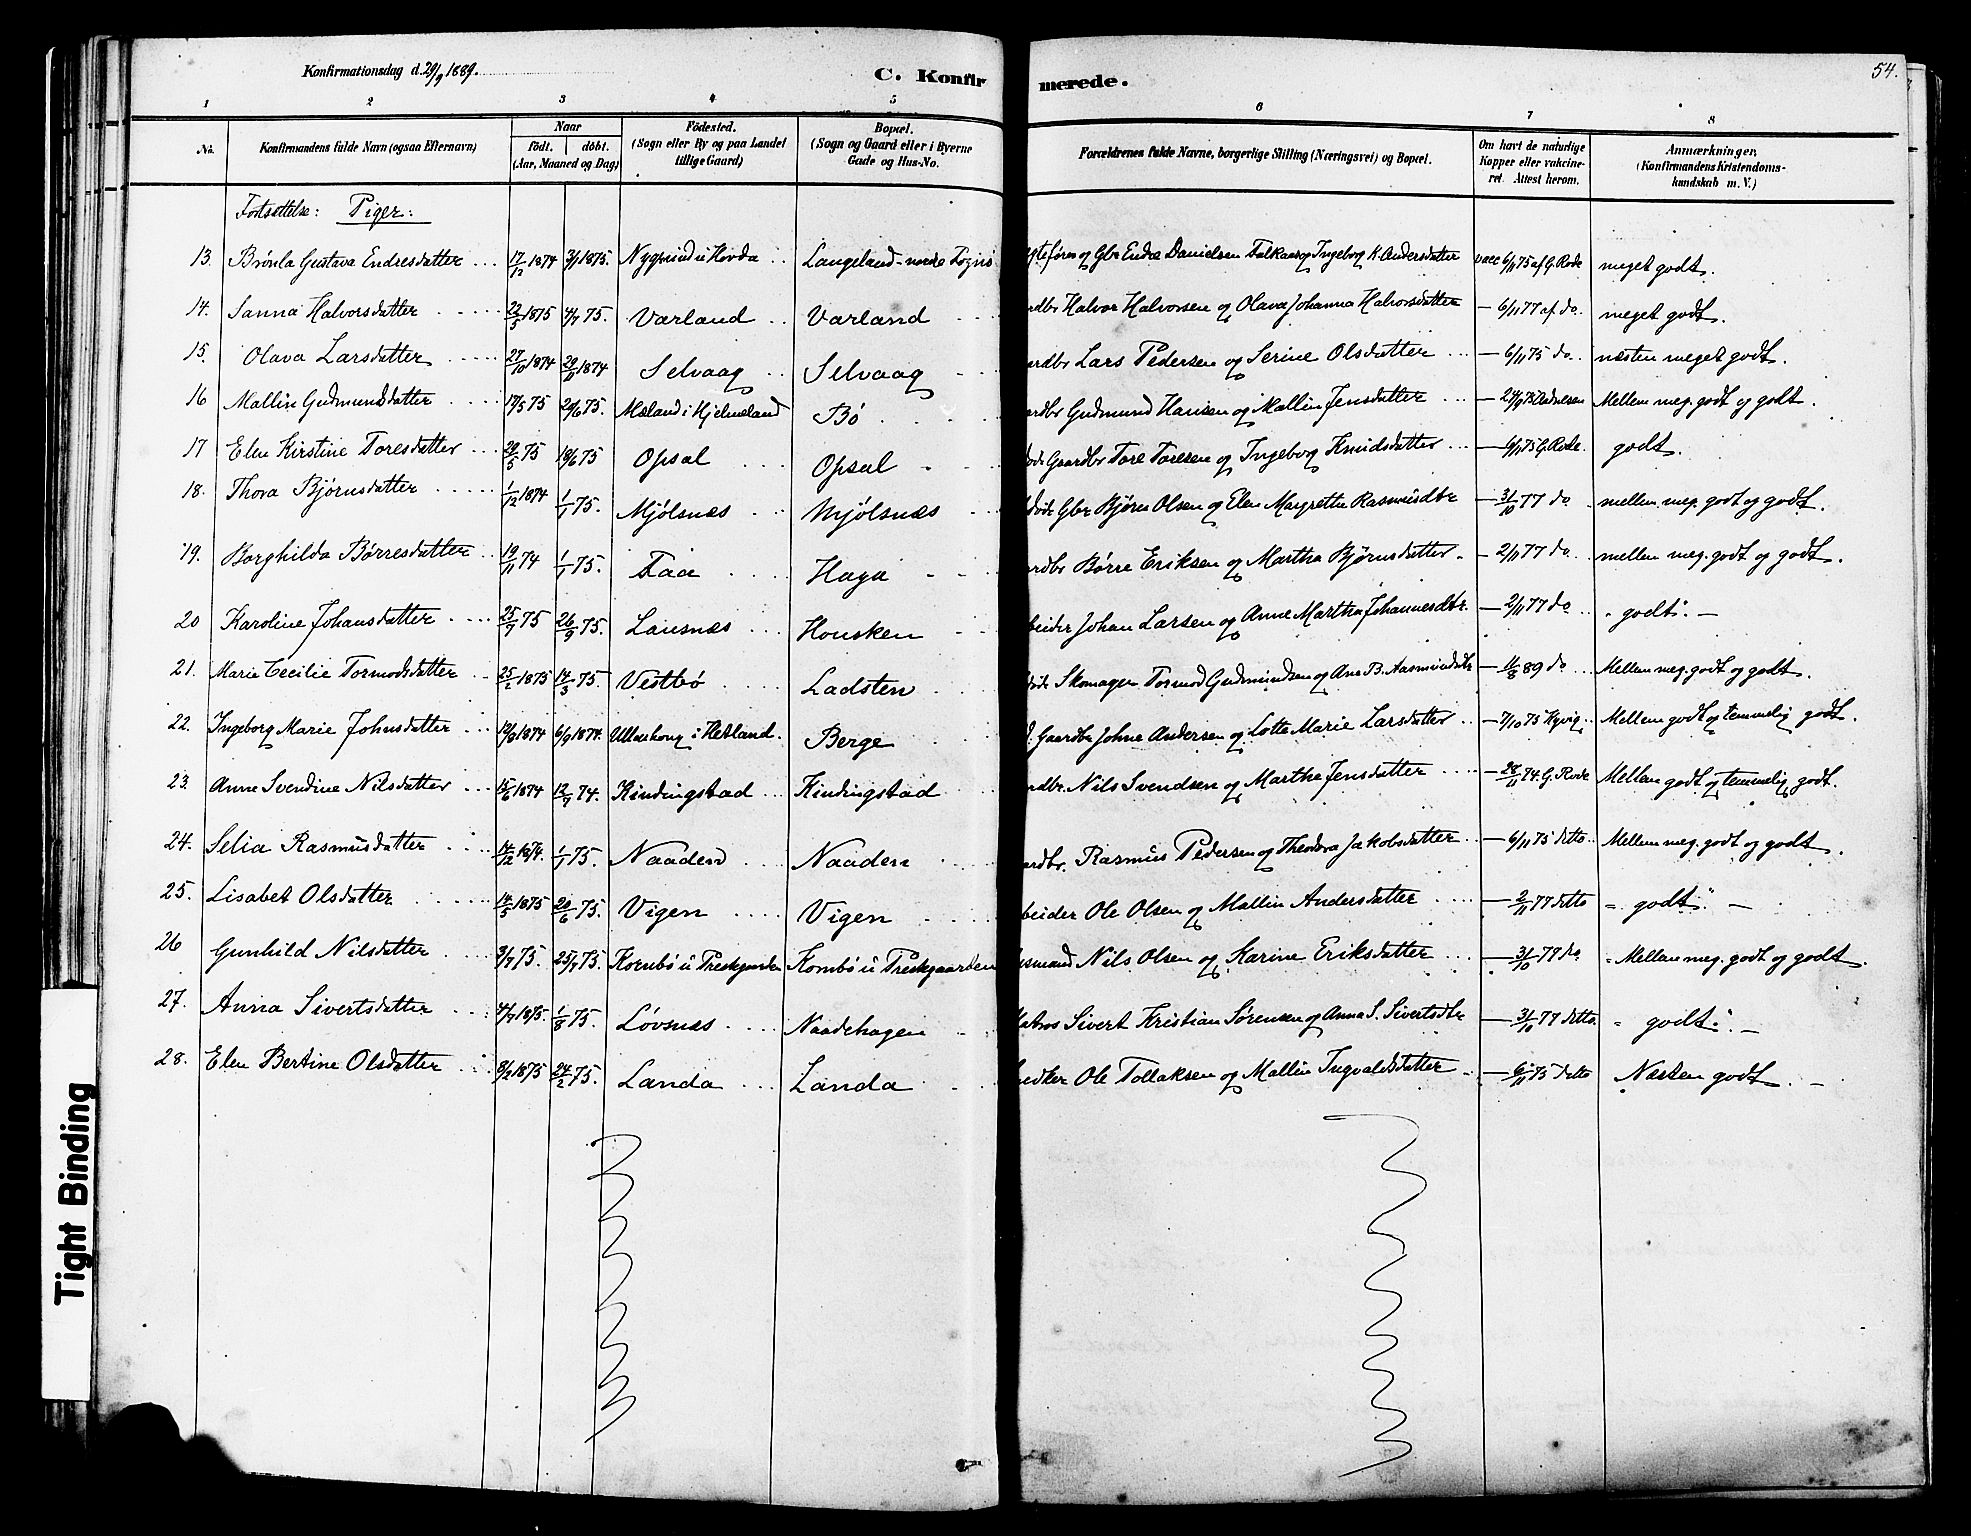 Konfirmationsdag d. 29/9 1889.
C. Konfir merede.
54.
1 2 3 4 5 6 7 8
No. Konfirmandens fulde Navn (ogsaa Efternavn) Naar födt. döbt. (Aar, Maaned og Dag) Födested. (Sogn eller By og paa Landet tillige Gaard) Bopæl. (Sogn og Gaard eller i Byerne Gade og Hus-No. Forældrenes fulde Navne, borgerlige Stilling (Næringsvei) og Bopæl. Om havt de naturlige Kopper eller vakcineret. Attest herom. Anmærkninger, (Konfirmandens Kristendomskundskab m. V.)
Fortsættelse: Piger:
13. Brönla Gustava Endresdatter 17/12 1874 3/1 1875. Nygrund i Hovda Langeland - nordre Sogns gtefören og Gbr Endre Danielsen Falkaas og Ingeborg K. Andersdatter vacc 6/11 75 af G. Rode meget godt.
14. Sanna Halvorsdatter 22/5 1875 4/7 75. Varland Varland ardbr Halvor Halvorsen og Olava Johanna Halvorsdatter — 6/11 77 af do meget godt.
15. Olava Larsdatter 27/10 1874 29/11 1874 Selvaag Selvaag ardbr Lars Pedersen og Serine Olsdatter — 6/11 75 do. næsten meget godt.
16 Mallin Gudmundsdatter 17/5 75 20/6 75. Mæland i Hjelmeland Bö ardbr Gudmund Hansen og Mallin Jensdatter — 24/9 75 Mellem meg. godt og godt.
17 Elen Kirstine Toresdatter 29/5 75 18/6 75 Opsal Opsal döde Gaardbr Tore Toresen og Ingeborg Knudsdatter — 6/11 75 G. Rode godt.
18. Thora Björnsdatter 1/12 1874 1/1 75. Mjölsnæs Mjölsnæs döde Gbr Björn Olsen og Elen Margrethe Rasmusdtr — 31/10 77 do mellem meg. godt og godt.
19. Borghilda Börresdatter 19/11 74 1/1 75. Faa Haga ardbr Börre Eriksen og Martha Björnsdatter. — 2/11 77 do mellem meg. godt og godt.
20 Karoline Johansdatter 25/9 75 26/9 75. Lausnæs Housken beider Johan Larsen og Anne Martha Johannesdtr. — 2/11 77 do godt. —
21. Marie Cecilie Tormodsdatter 25/2 1875 14/3 75. Vestbö Ladsten döde Skomager Tormod Gudmundsen og Ane B. Aasmundsdtr — 11/8 89 do Mellem meg. godt og godt.
22. Ingeborg Marie Johnsdatter 12/8 1874 6/9 1874. Ullenhoug i Hetland. Berge d. Gaardbr Johne Andersen og Lotte Marie Larsdatter — 7/10 75 Kyvig Mellem godt og temmelig godt.
23. Anne Svendine Nilsdatter 15/6 1874 12/7 74. Kindingstad Kindingstad ardbr. Nils Svendsen og Marthe Jensdatter — 28/11 74. G. Rode Mellem godt og temmelig godt.
24. Selia Rasmusdatter 14/12 1874. 1/1 75. Naaden Naaden ardbr. Rasmus Pedersen og Theodora Jakobsdatter — 6/11 75 detto Mellem meg. godt og godt.
25. Lisabet Olsdatter 14/5 1875 20/6 75. Vigen Vigen beider Ole Olsen og Mallin Andersdatter — 2/11 77 detto godt. —
26 Gunhild Nilsdatter 3/7 75. 25/7 75. Kornbö u Preskgaarden Kornbö u Preskgaarden usmand Nils Olsen og Karine Eriksdatter — 31/10 79 do Mellem meg. godt og godt.
27. Anna Sivertsdatter 4/7 1875. 1/8 75. Lövsnæs Naadehagen Matros Sivert Kristian Sörensen og Anna S. Sivertsdtr — 31/10 77 detto godt. —
28. Elen Bertine Olsdatter 8/2 1875 24/2 75. Landa Landa nedker Ole Tollaksen og Mallin Ingvaldsdatter — 6/11 75 detto Næsten godt. —
Tight Binding